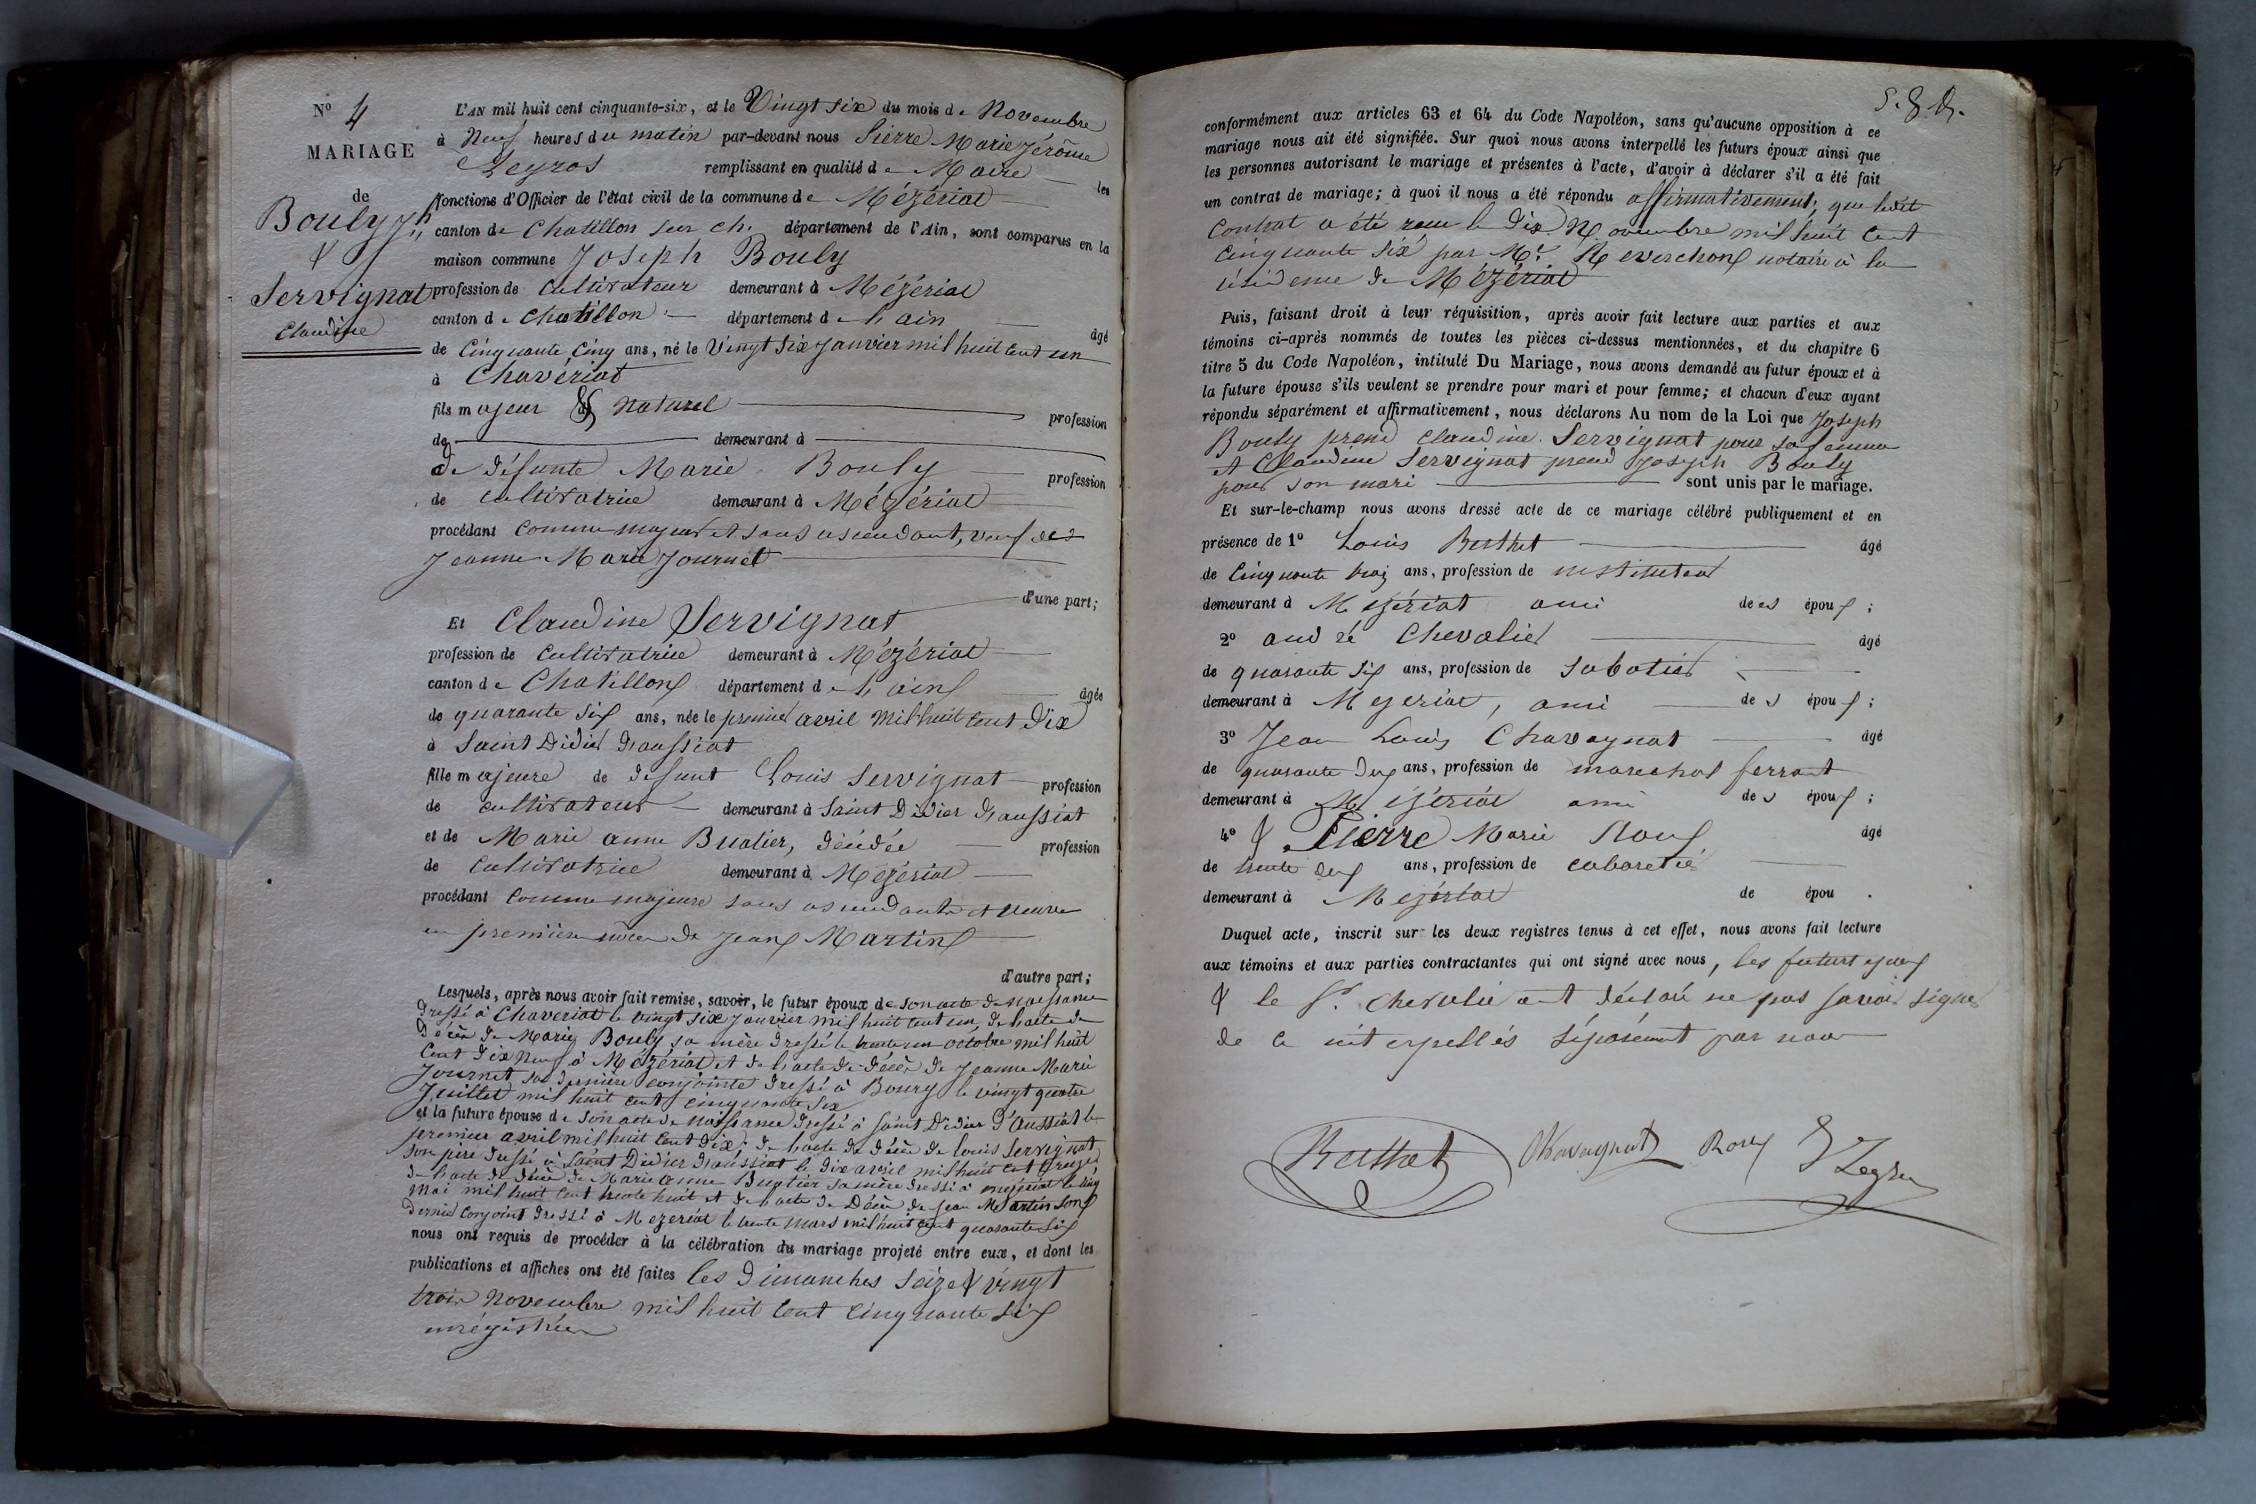 Nº 4
MARIAGE
de
Bouly Jh
&
Servignat
Claudine
L'AN mil huit cent cinquante-six, et le Vingt six du mois de Novembre
à Neuf heures du matin par-devant nous Pierre Marie Jérôme
remplissant en qualité de Maire les
fonctions d'Officier de l'état civil de la commune de Mézériat
canton de Chatillon sur ch. département de l'Ain, sont comparus en la
maison commune Joseph Bouly
profession de Cultivateur demeurant à Mézériat
canton de Chatillon département de l'ain âgé
de Cinquante Cinq ans, né le Vingt Six Janvier mil huit cent un
à Chavériat
fils majeur & naturel profession
de demeurant à
de défunte Marie Bouly profession
de cultivatrice demeurant à Mézériat
procédant comme majeur et sans ascendant, veuf de
Jeanne Marie Journet
d'une part;
Et Claudine Servignat
profession de Cultivatrice demeurant à Mézériat
canton de Chatillon département de l'ain âgée
de quarante six ans, née le premier avril mil huit cent dix
à Saint Didier d'aussiat
fille majeure de défunt Louis Servignat profession
de cultivateur demeurant à Saint Didier d'aussiat
et de Marie anne Buatier, décédée profession
de Cultivatrice demeurant à Mézériat
procédant comme majeure sans ascendants et veuve
en première noces de Jean Martin
d'autre part;
Lesquels, après nous avoir fait remise, savoir, le futur époux de son acte de Naissance
dressé à Chaveriat le vingt six Janvier mil huit cent un, de l'acte de
décès de Marie Bouly sa mère dressé le trente un octobre mil huit
Cent dix neuf à Mézériat et de l'acte de décès de Jeanne Marie
Journet sa dernière conjointe dressé à Bourg le vingt quatre
Juillet mil huit cent cinquante six
et la future épouse de son acte de Naissance dressé à Saint Didier d'Aussiat le
premier avril mil huit cent dix; de l'acte de décès de Louis Servignat
son père dressé à Saint Didier d'aussiat le dix avril mil huit cent
de l'acte de décès de Marie anne Buatier sa mère dressé à mézériat le cinq
Mai mil huit cent trente huit et de l'acte de Décès de Jean Martin son
dernier conjoint dressé à Mezeriat le trente Mars mil huit cent quarante six
nous ont requis de procéder à la célébration du mariage projeté entre eux, et dont les
publications et affiches ont été faites les dimanches seize & vingt
trois novembre mil huit cent cinquante six
enregistrées
conformément aux articles 63 et 64 du Code Napoléon, sans qu'aucune opposition à ce
mariage nous ait été signifiée. Sur quoi nous avons interpellé les futurs époux ainsi que
les personnes autorisant le mariage et présentes à l'acte, d'avoir à déclarer s'il a été fait
un contrat de mariage; à quoi il nous a été répondu affirmativement; que ledit
Contrat a été reçu le dix Novembre mil huit Cent
Cinquante Six par Mr. Reverchon notaire à la
résidence de Mézériat
Puis, faisant droit à leur réquisition, après avoir fait lecture aux parties et aux
témoins ci-après nommés de toutes les pièces ci-dessus mentionnées, et du chapitre 6
titre 5 du Code Napoléon, intitulé Du Mariage, nous avons demandé au futur époux et à
la future épouse s'ils veulent se prendre pour mari et pour femme; et chacun d'eux ayant
répondu séparément et affirmativement, nous déclarons Au nom de la Loi que Joseph
Bouly prend Claudine Servignat pour sa femme
et Claudine Servignat prend Joseph Bouly
pour son mari sont unis par le mariage.
Et sur-le-champ nous avons dressé acte de ce mariage célébré publiquement et en
présence de 1º Louis Berthet âgé
de Cinquante trois ans, profession de instituteur
demeurant à Mézériat ami des époux;
2º andré Chevalier âgé
de quarante six ans, profession de Sabotier
demeurant à Mezeriat, ami des époux;
3º Jean Louis Chavagnat âgé
de quarante deux ans, profession de marechal ferrant
demeurant à Mézériat ami des époux;
4º & Pierre Marie Roux âgé
de trente deux ans, profession de cabaretié
demeurant à Mezériat de épou .
Duquel acte, inscrit sur les deux registres tenus à cet effet, nous avons fait lecture
aux témoins et aux parties contractantes qui ont signé avec nous, les futurs époux
& le Sr. Chevalié ont déclaré ne pas savoir signer
de ce interpellés séparément par nous
Berthet Chavagnat Roux